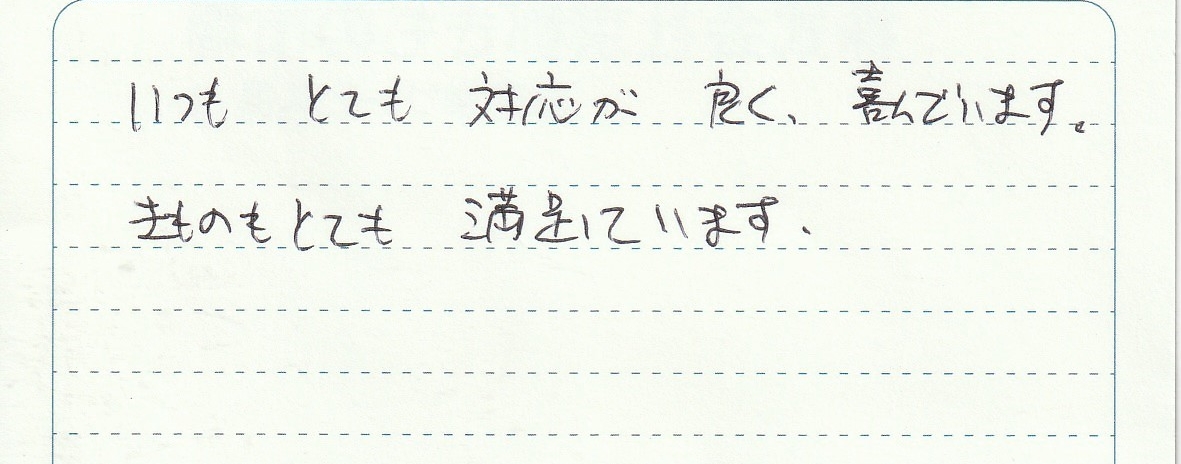 いつも とても 対応が 良く、喜んでいます。
きものもとても 満足しています.